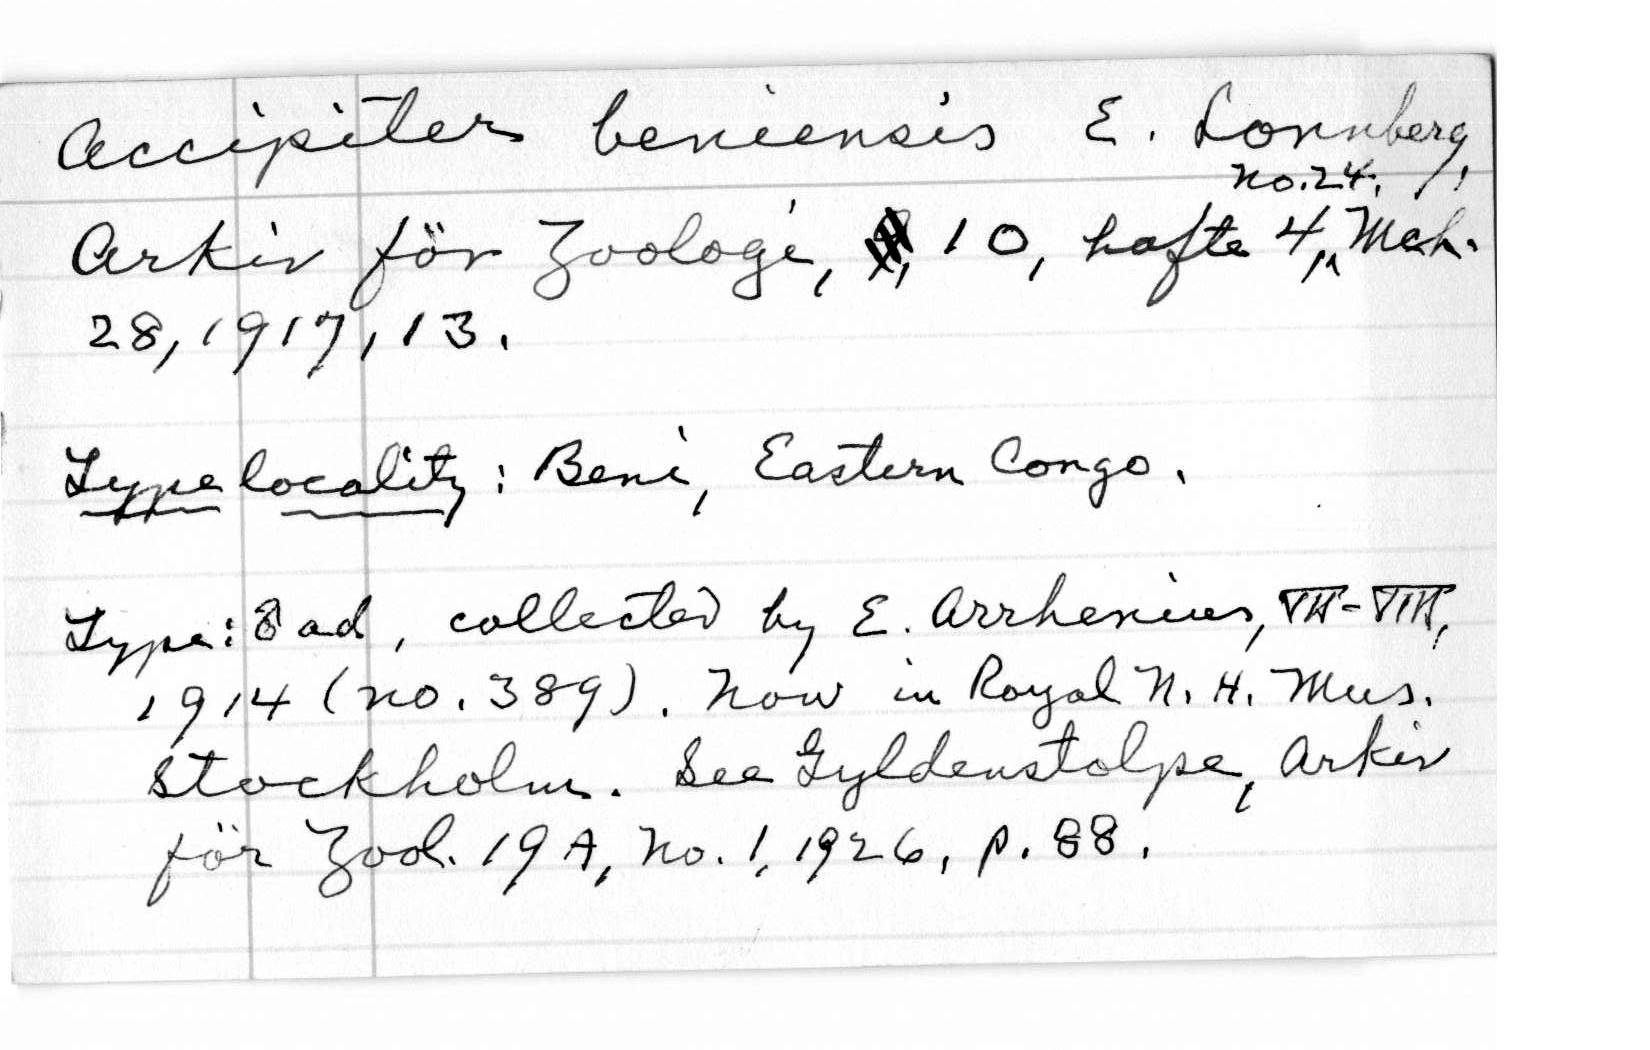 Accipiter beniensis E. Lonnberg,
no. 24,
Arkiv för Zoologi, 10, hafte 4, Mch.
28, 1917, 13.
Type locality: Beni, Eastern Congo.
Type: ad, collected by E. Arrhenius, VII-VIII,
1914 (no. 389). Now in Royal N. H. Mus.
Stockholm. See Gyldenstolpe, Arkiv
för Zool. 19A, No. 1, 1926, p. 88.